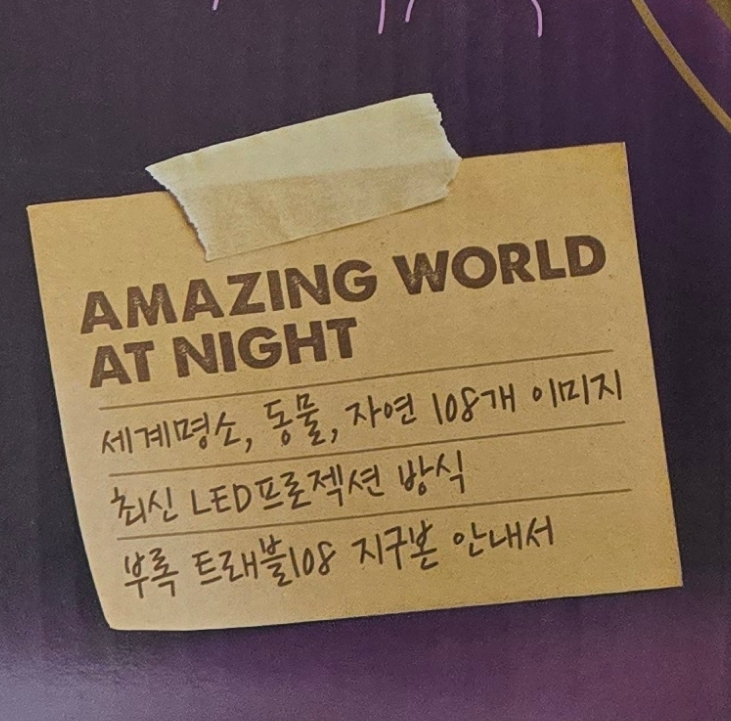 AMAZING WORLD
AT NIGHT
세계명소, 동물, 자연 108개 이미지
최신 LED프로젝션 방식
부록 트래블108 지구본 안내서